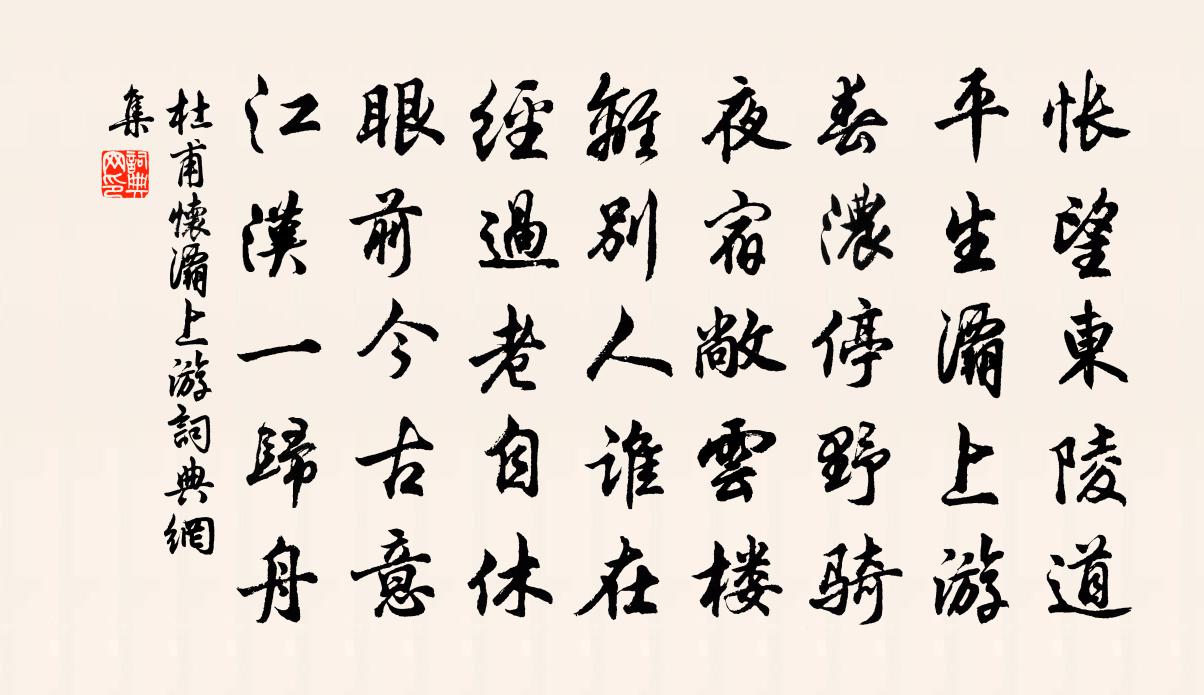 悵望東陵道
平生灞上游
春濃停野骑
夜宿敞雲楼
離別人誰在
經過老自休
眼前今古意
江漢一歸舟
杜甫懷灞上游詞典網
集
詞典
网印